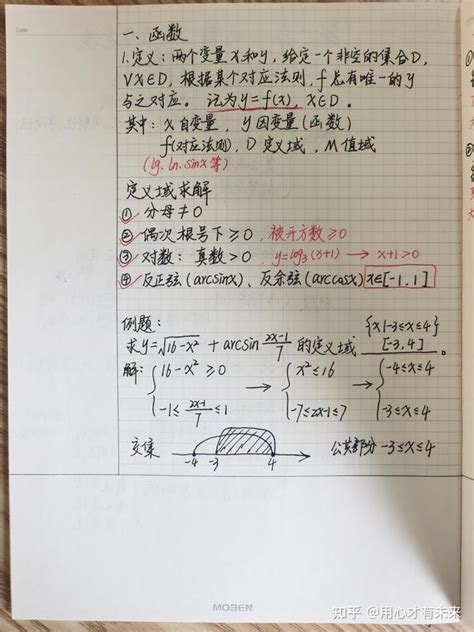 Date
一、函数
1.定义:两个变量x和y,给定一个非空的集合D,
∀x∈D,根据某个对应法则,f总有唯一的y
与之对应。记为y=f(x), x∈D。
其中:x自变量,y因变量(函数)
f(对应法则),D定义域,M值域
(lg. ln. sinx等)
定义域求解
① 分母≠0
② 偶次根号下≥0,被开方数≥0
③ 对数:真数>0, y=log₃(x+1) → x+1>0
④ 反正弦(arcsinx)、反余弦(arccosx) x∈[-1,1]
例题:
{x|-3≤x≤4}
求y=√16-x² + arcsin (2x-1)/7 的定义域 [-3,4]。
解:{16-x²≥0 → {x²≤16 → {-4≤x≤4
-1≤(2x-1)/7≤1 -7≤2x-1≤7 -3≤x≤4
交集 -4 -3 4 公共部分-3≤x≤4
MOBEN
知乎 @用心才有未来